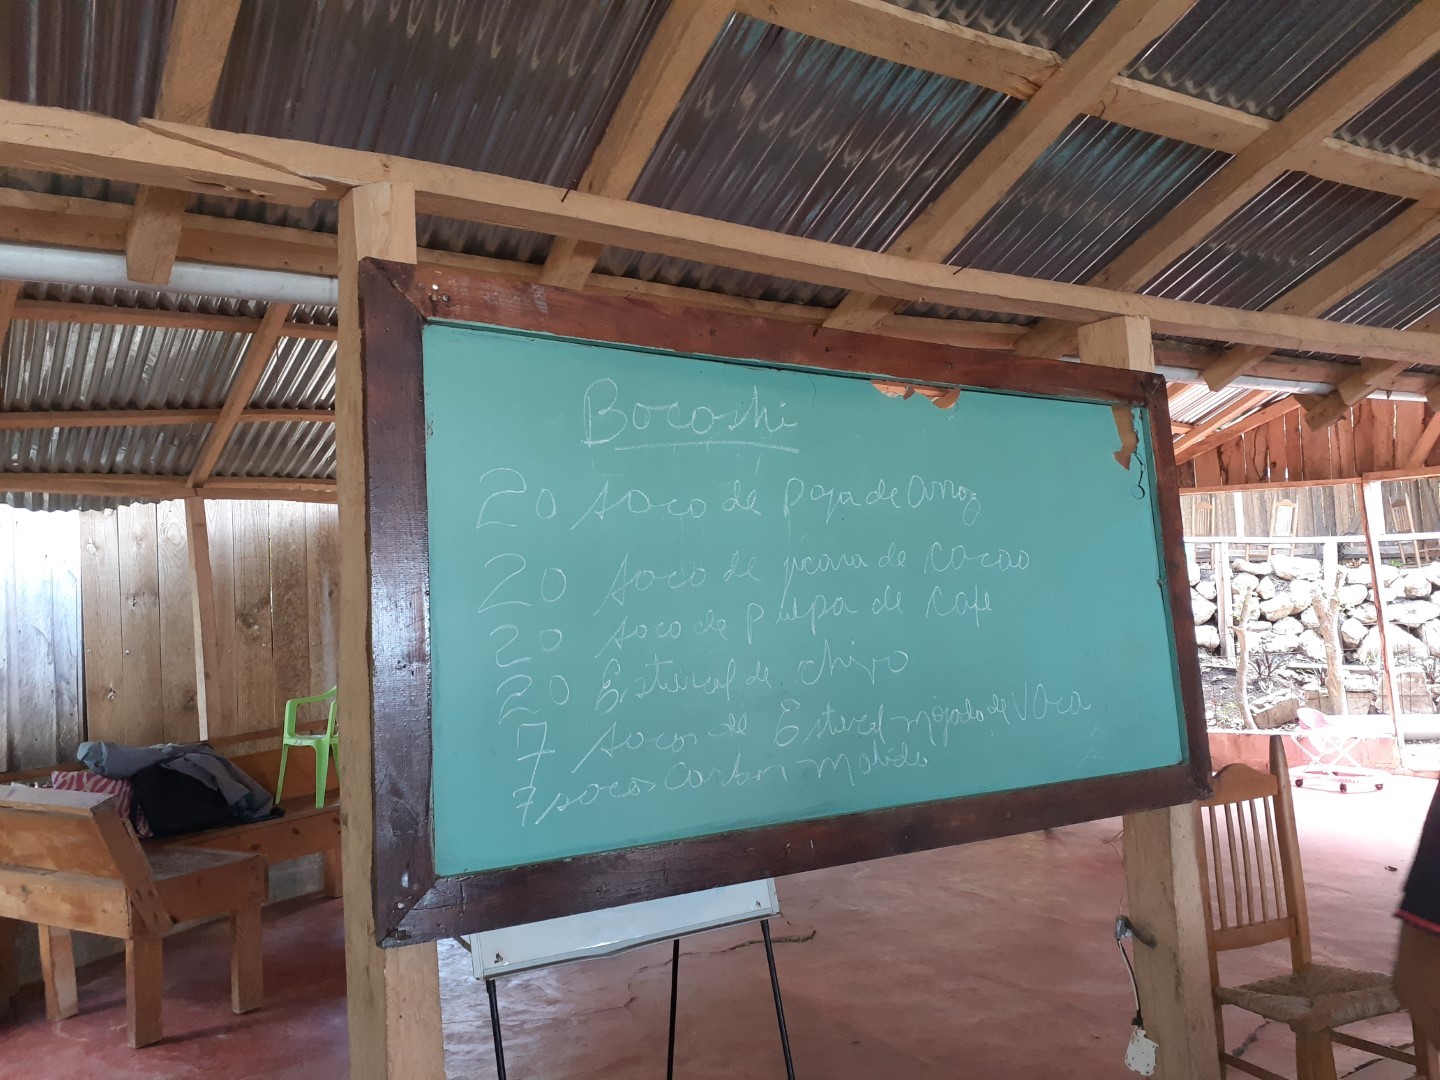 Bocoshi
20 saco de paja de arroz
20 saco de jicara de cacao
20 saco de pulpa de cafe
20 Estiercol de chivo
7 sacos de Estiercol mojado de vaca
7 sacos carbon molido